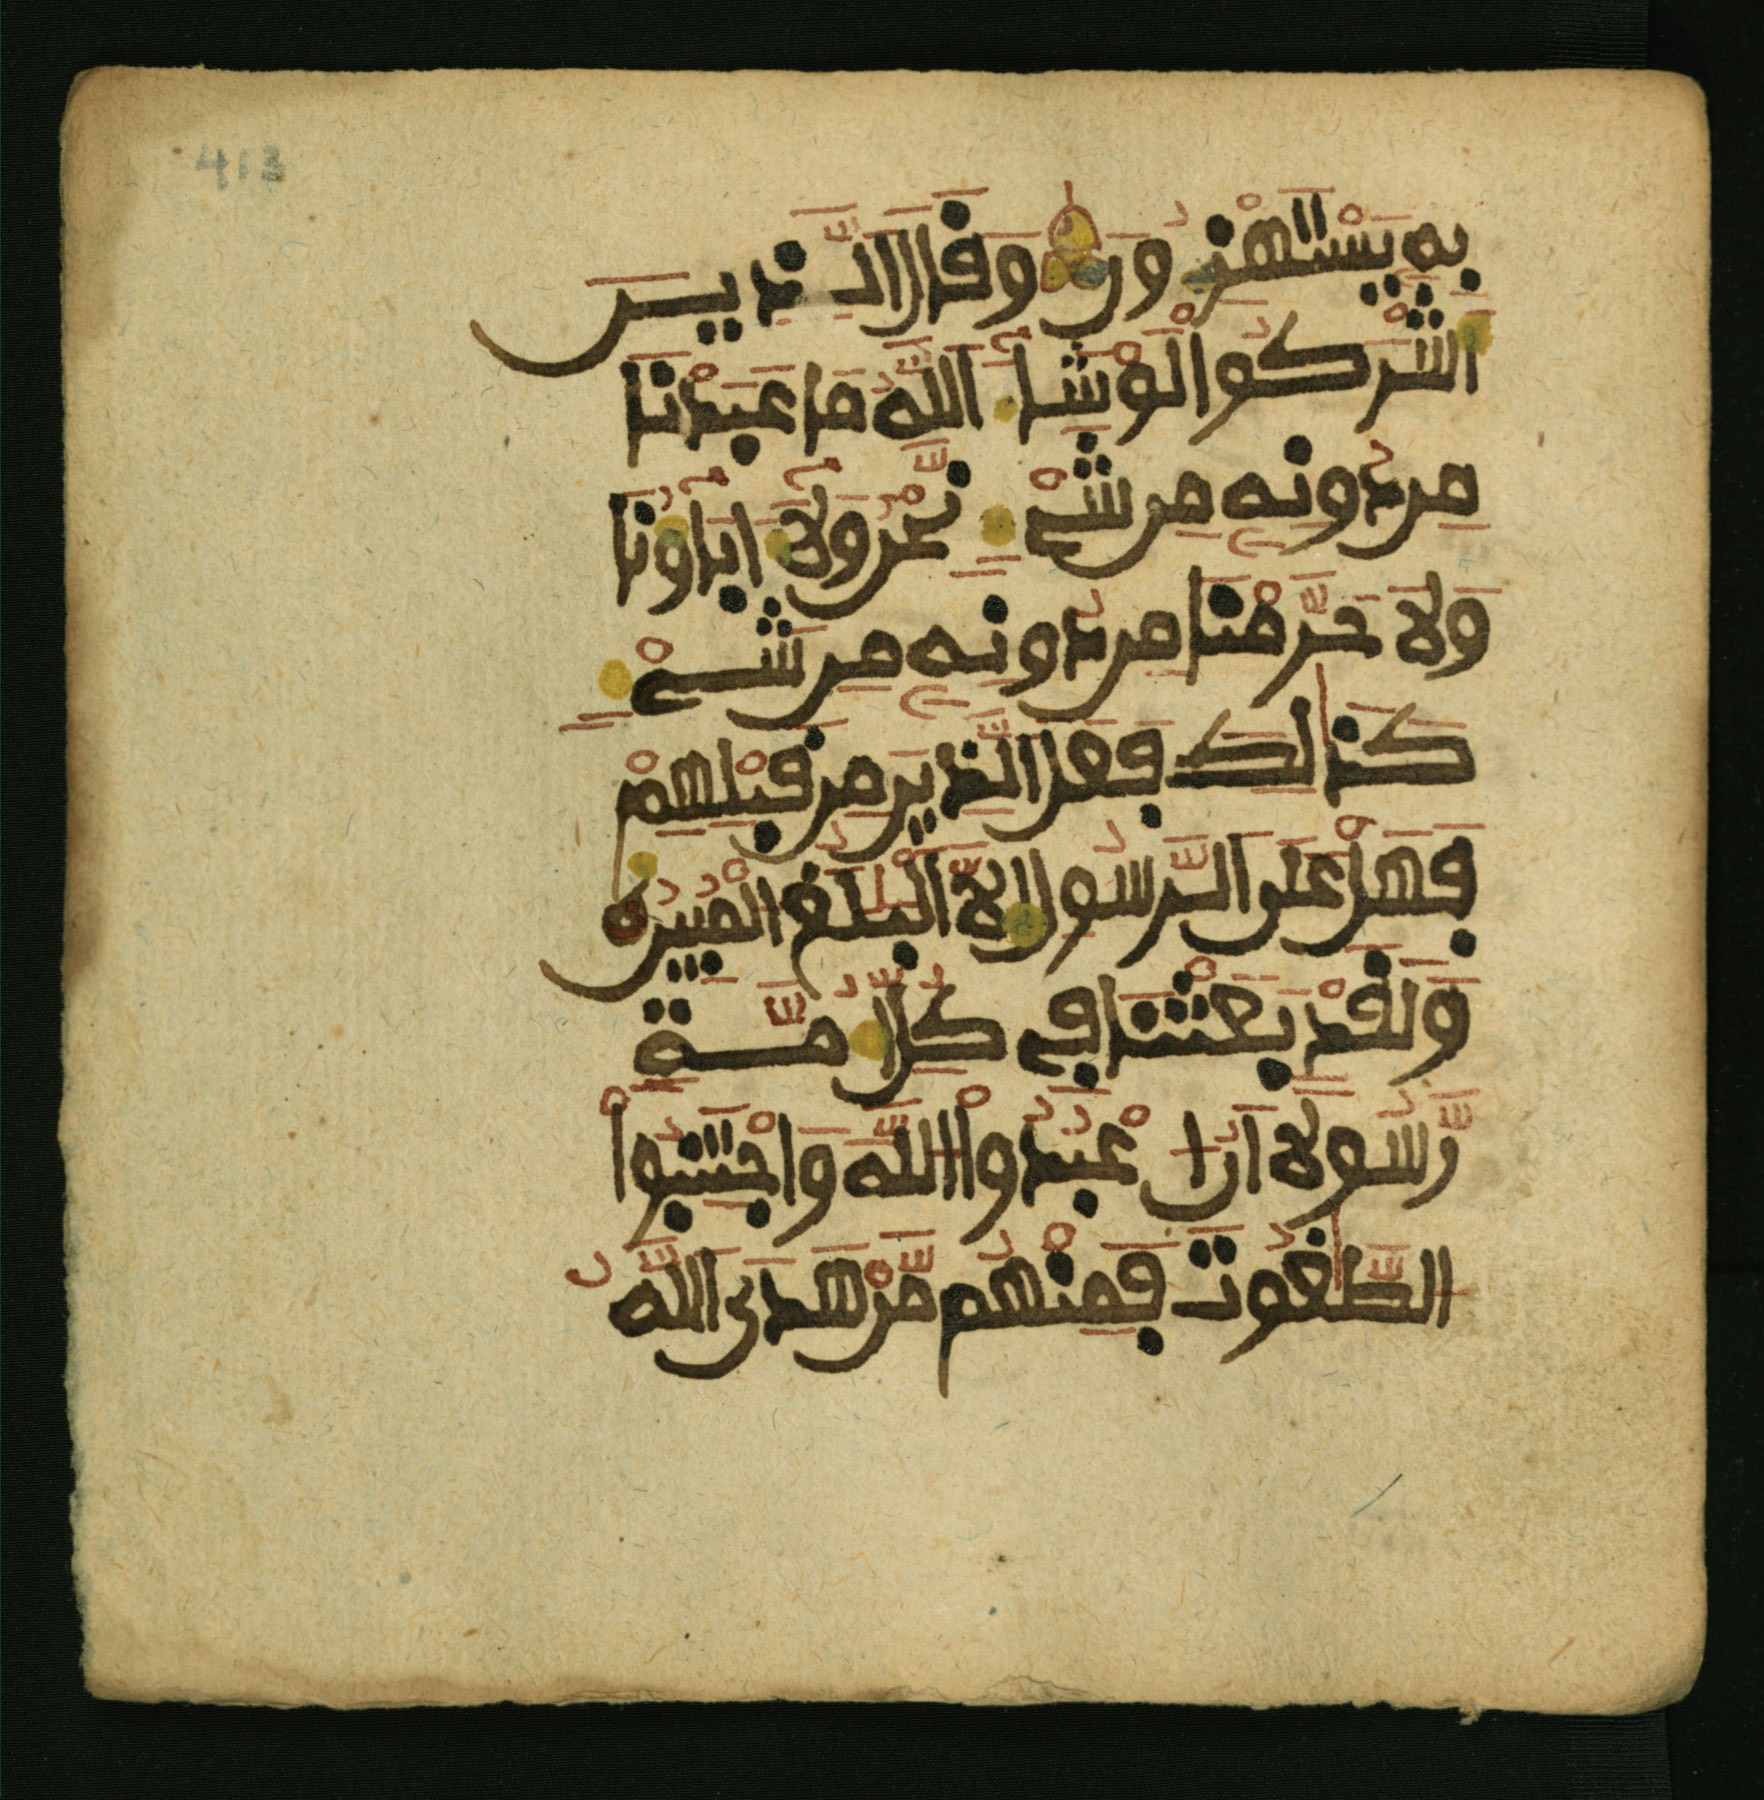 413
بِهِ يَسْتَهْزِءُونَ وَقَالَ الَّذِينَ
أَشْرَكُوا لَوْ شَآءَ اللَّهُ مَا عَبَدْنَا
مِن دُونِهِ مِن شَيْءٍ نَّحْنُ وَلَآ ءَابَآؤُنَا
وَلَا حَرَّمْنَا مِن دُونِهِ مِن شَيْءٍ
كَذَٰلِكَ فَعَلَ الَّذِينَ مِن قَبْلِهِمْ
فَهَلْ عَلَى الرَّسُولِ إِلَّا الْبَلَٰغُ الْمُبِينُ
وَلَقَدْ بَعَثْنَا فِي كُلِّ أُمَّةٍ
رَّسُولًا أَنُ اعْبُدُواْ اللَّهَ وَاجْتَنِبُواْ
الطَّٰغُوتَ فَمِنْهُم مَّنْ هَدَى اللَّهُ